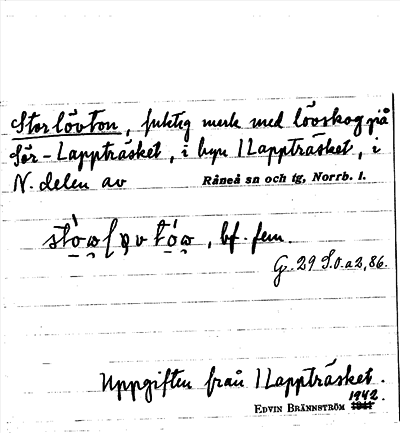 Storlövton, fuktig mark med lövskog på
Sör-Lappträsket, i byn Lappträsket, i
N. delen av Råneå sn och tg, Norrb. l.
, bf. fem.
G. 29 S.o.a2,86.
Uppgiften från Lappträsket.
EDVIN BRÄNNSTRÖM 1942.